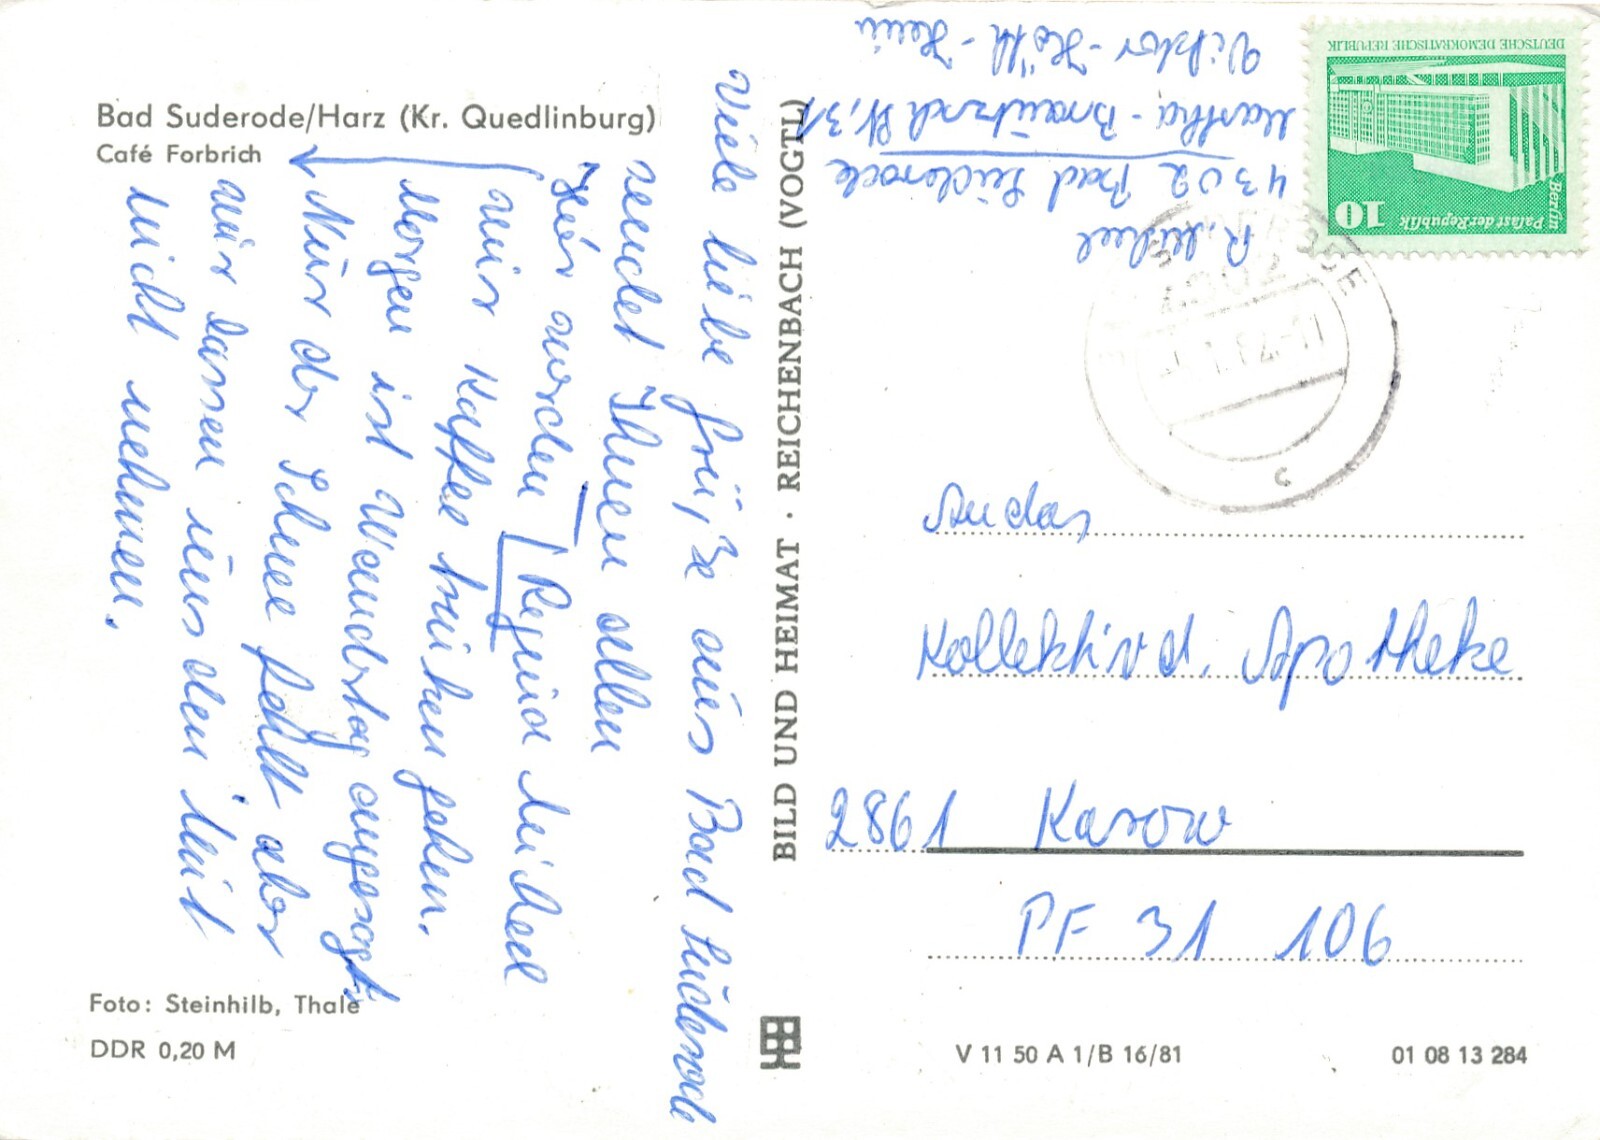 Bad Suderode/Harz (Kr. Quedlinburg)
Café Forbrich
Viele liebe Grüße aus Bad Suderode
sendet Ihnen allen
Regina Michael
Hier werden
wir Kaffee trinken gehen.
Morgen ist Wandertag angesagt,
Nur der Schnee fehlt aber
wir lassen uns den Mut
nicht nehmen.
Foto: Steinhilb, Thale
DDR 0,20 M
BILD UND HEIMAT · REICHENBACH (VOGTL)
R. Michael
4302 Bad Suderode
Martha-Brautzsch Str. 31
Viktor-Höth-Heim
10
Palast der Republik
Berlin
DEUTSCHE DEMOKRATISCHE REPUBLIK
An das
Kollektiv d. Apotheke
2861 Karow
PF 31 106
V 11 50 A 1/B 16/81
01 08 13 284